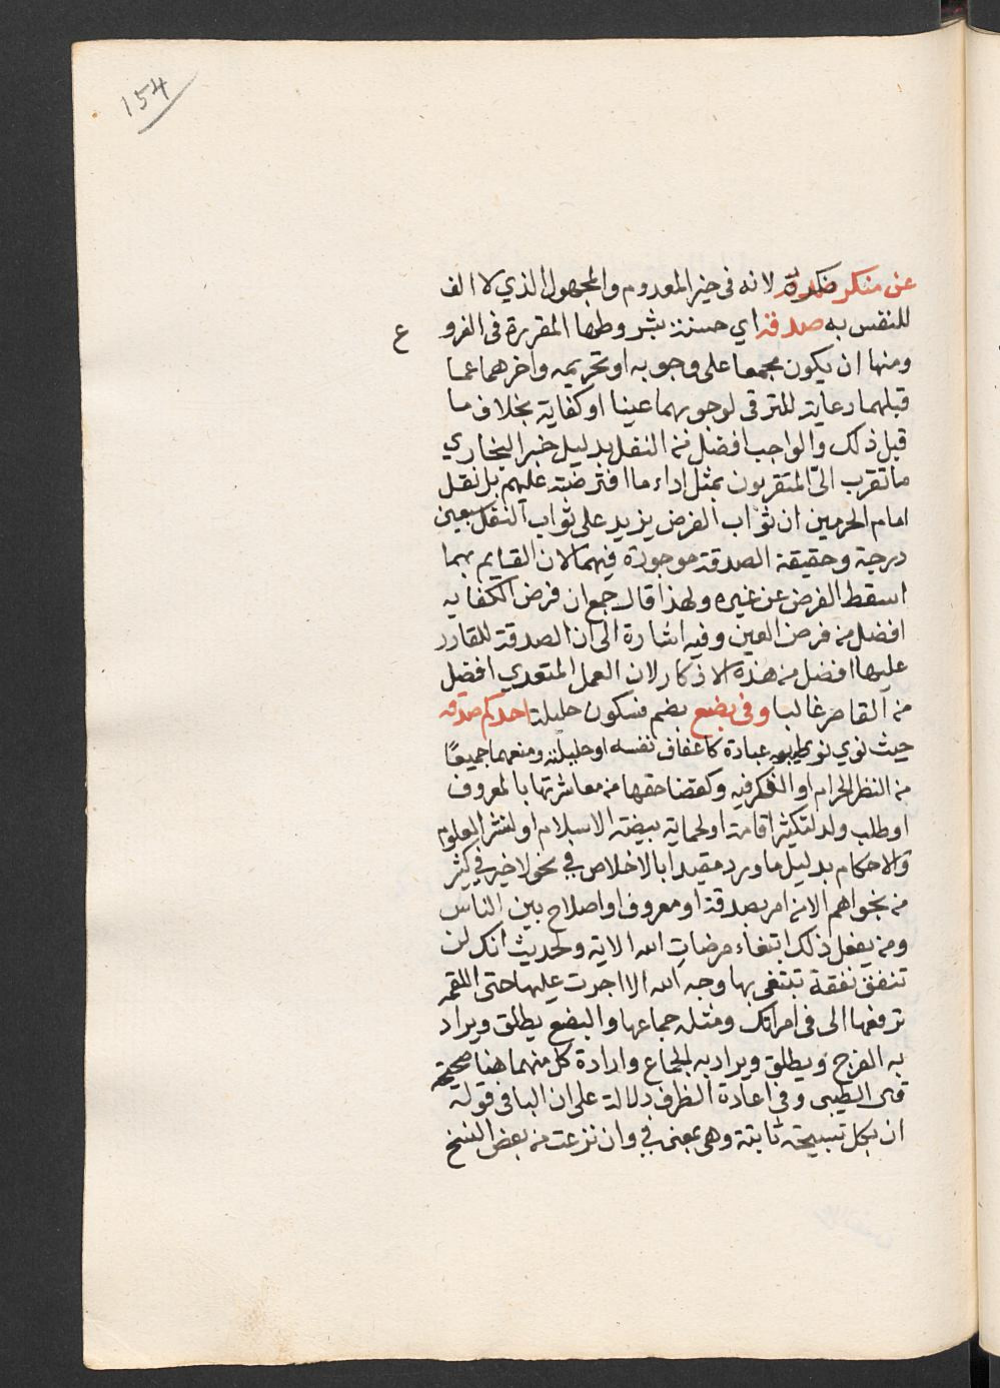 154
عن منكر نكره لانه فى حيز المعدوم والمجهول الذي لا الف
للنفس به صدقة اي حسنة بشروطها المقررة فى الفرو ع
ومنها ان يكون مجمعا على وجوبه او تحريمه واخرهما عما
قبلهما رعاية للترقى لوجوبهما عينا او كفاية بخلاف ما
قبل ذلك والواجب افضل من النفل بدليل خبر البخاري
ما تقرب الىّ المتقربون بمثل اداء ما افترضته عليهم بل نقل
امام الحرمين ان ثواب الفرض يزيد على ثواب النفل سبعين
درجة وحقيقة الصدقة موجودة فيهما لان القايم بهما
اسقط الفرض عن غيره ولهذا قال جمع ان فرض الكفايه
افضل من فرض العين وفيه اشارة الى ان الصدقة للقادر
عليها افضل من هذه الاذكار لان العمل المتعدي افضل
من القاصر غالبا وفى بضع بضم فسكون حليلة احدكم صدقه
حيث نوي نوي به عبادة كاعفاف نفسه او حليلته ومنعهما جميعًا
من النظر الحرام او الفكر فيه وكقضا حقها من معاشرتها بالمعروف
او طلب ولد لتكثير اقامة او لحماية بيضة الاسلام او لنشر العلوم
والاحكام بدليل ما ورد مقيدا بالاخلاص في نحو لا خير في كثير
من نجواهم الا من امر بصدقة او معروف او اصلاح بين الناس
ومن يفعل ذلك ابتغاء مرضات الله الاية ولحديث انك لن
تنفق نفقة تبتغى بها وجه الله الا اجرت عليها حتى اللقمه
ترفعها الى فى امراتك ومثله جماعها والبضع يطلق ويراد
به الفرج ويطلق ويراد به الجماع وارادة كل منهما هنا صحيحه
قال الطيبى وفى اعادة الظرف دلالة على ان البا فى قوله
ان بكل تسبيحة ثابتة وهى بمعنى في وان نزعت من بعض النسخ